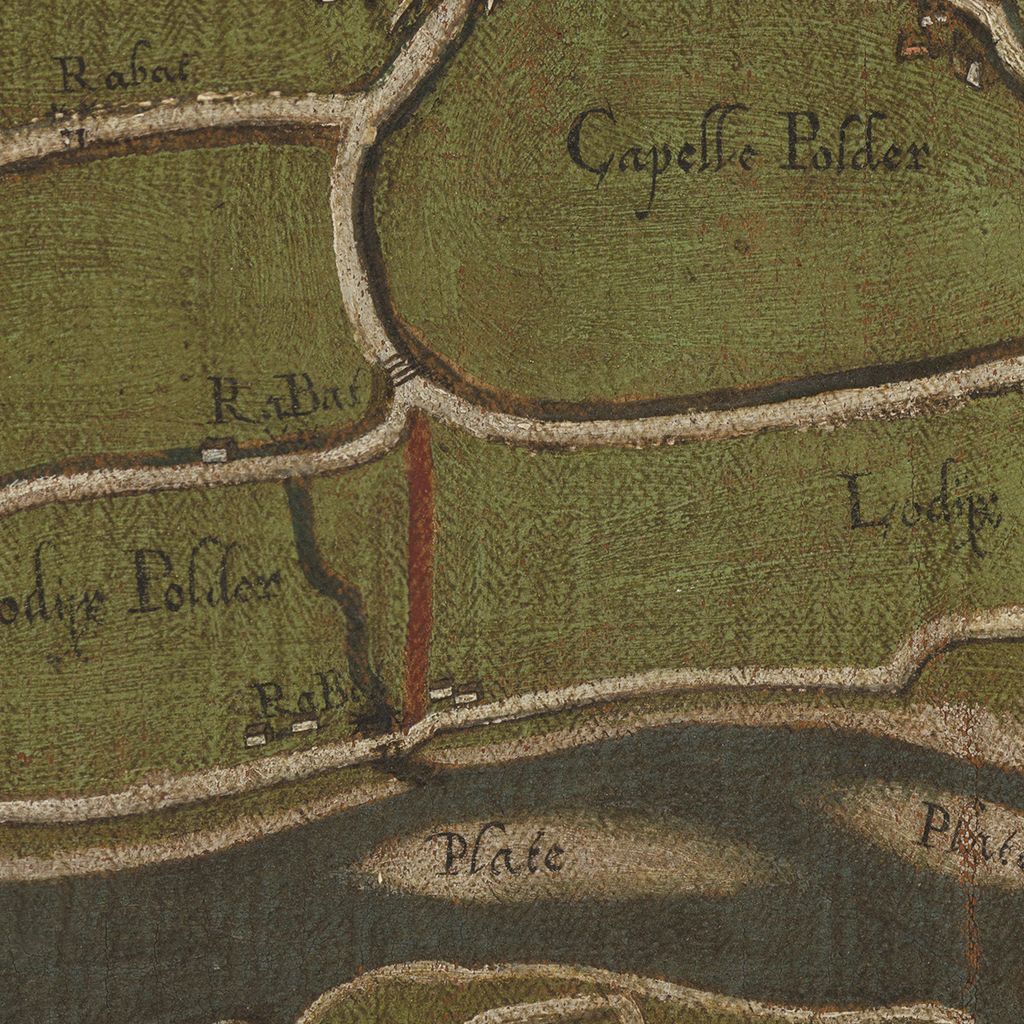 Rabat
Capelle Polder
RaBat
Lodijx
odijx Polder
RaBat
Plate
Plate